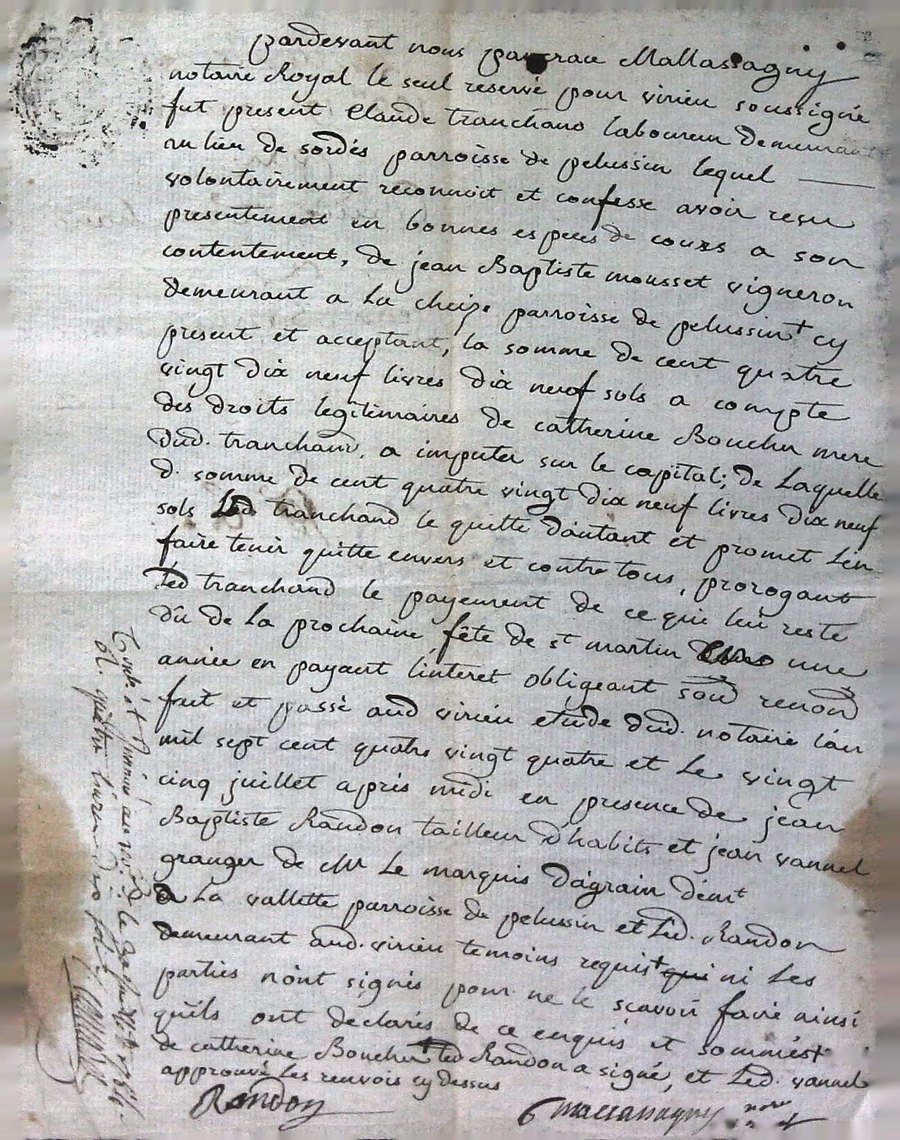 pardevant nous pancrace Mallassagny
notaire Royal le seul reservé pour virieu soussigné
fut present Claude tranchand laboureur demeurant
au lieu de sordés parroisse de pelussin lequel
volontairement reconnoit et confesse avoir reçu
presentement en bonnes especes de cours a son
contentement, de jean Baptiste mousset vigneron
demeurant a La cheize parroisse de pelussin + cy
present et acceptant, la somme de cent quatre
vingt dix neuf livres dix neuf sols a compte
des droits legitimaires de catherine Boucher mere
dud. tranchand, a imputer sur le capital; de Laquelle
d. somme de cent quatre vingt dix neuf livres dix neuf
sols Led tranchand le quitte dautant et promet L'en
faire tenir quitte envers et contre tous, prorogant
Led tranchand le payement de ce qui lui reste
dû de La prochaine fête de st martin une
année en payant l'interet obligeant soud renond
fait et passé aud virieu etude dud. notaire l'an
mil sept cent quatre vingt quatre et Le vingt
cinq juillet apres midi en presence de jean
Baptiste Randon tailleur d'habits et jean vannel
granger de Mr Le marquis d'agrain demt
a La vallette parroisse de pelussin et Led. Randon
demeurant aud. virieu temoins requis + qui ni Les
parties n'ont signés pour ne le scavoir faire ainsi
qu'ils ont declarés de ce enquis et sommés +
de catherine Boucher + led Randon a signé, et Led. vannel
approuvé les renvois cy dessus
Randon
Mallassagny